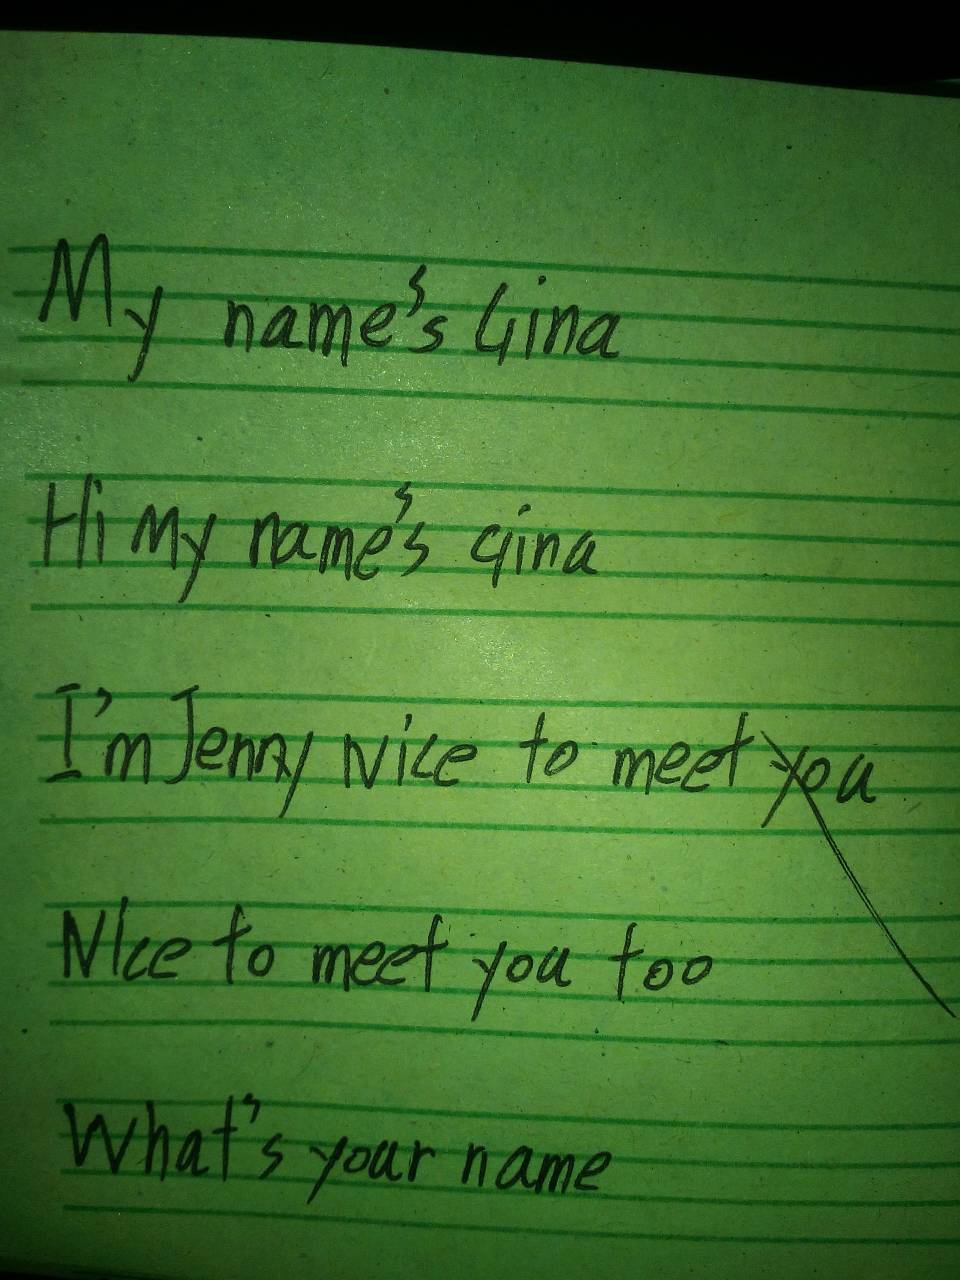 My name's Gina
Hi My name's Gina
I'm Jenny Nice to meet you
Nice to meet you too
What's your name